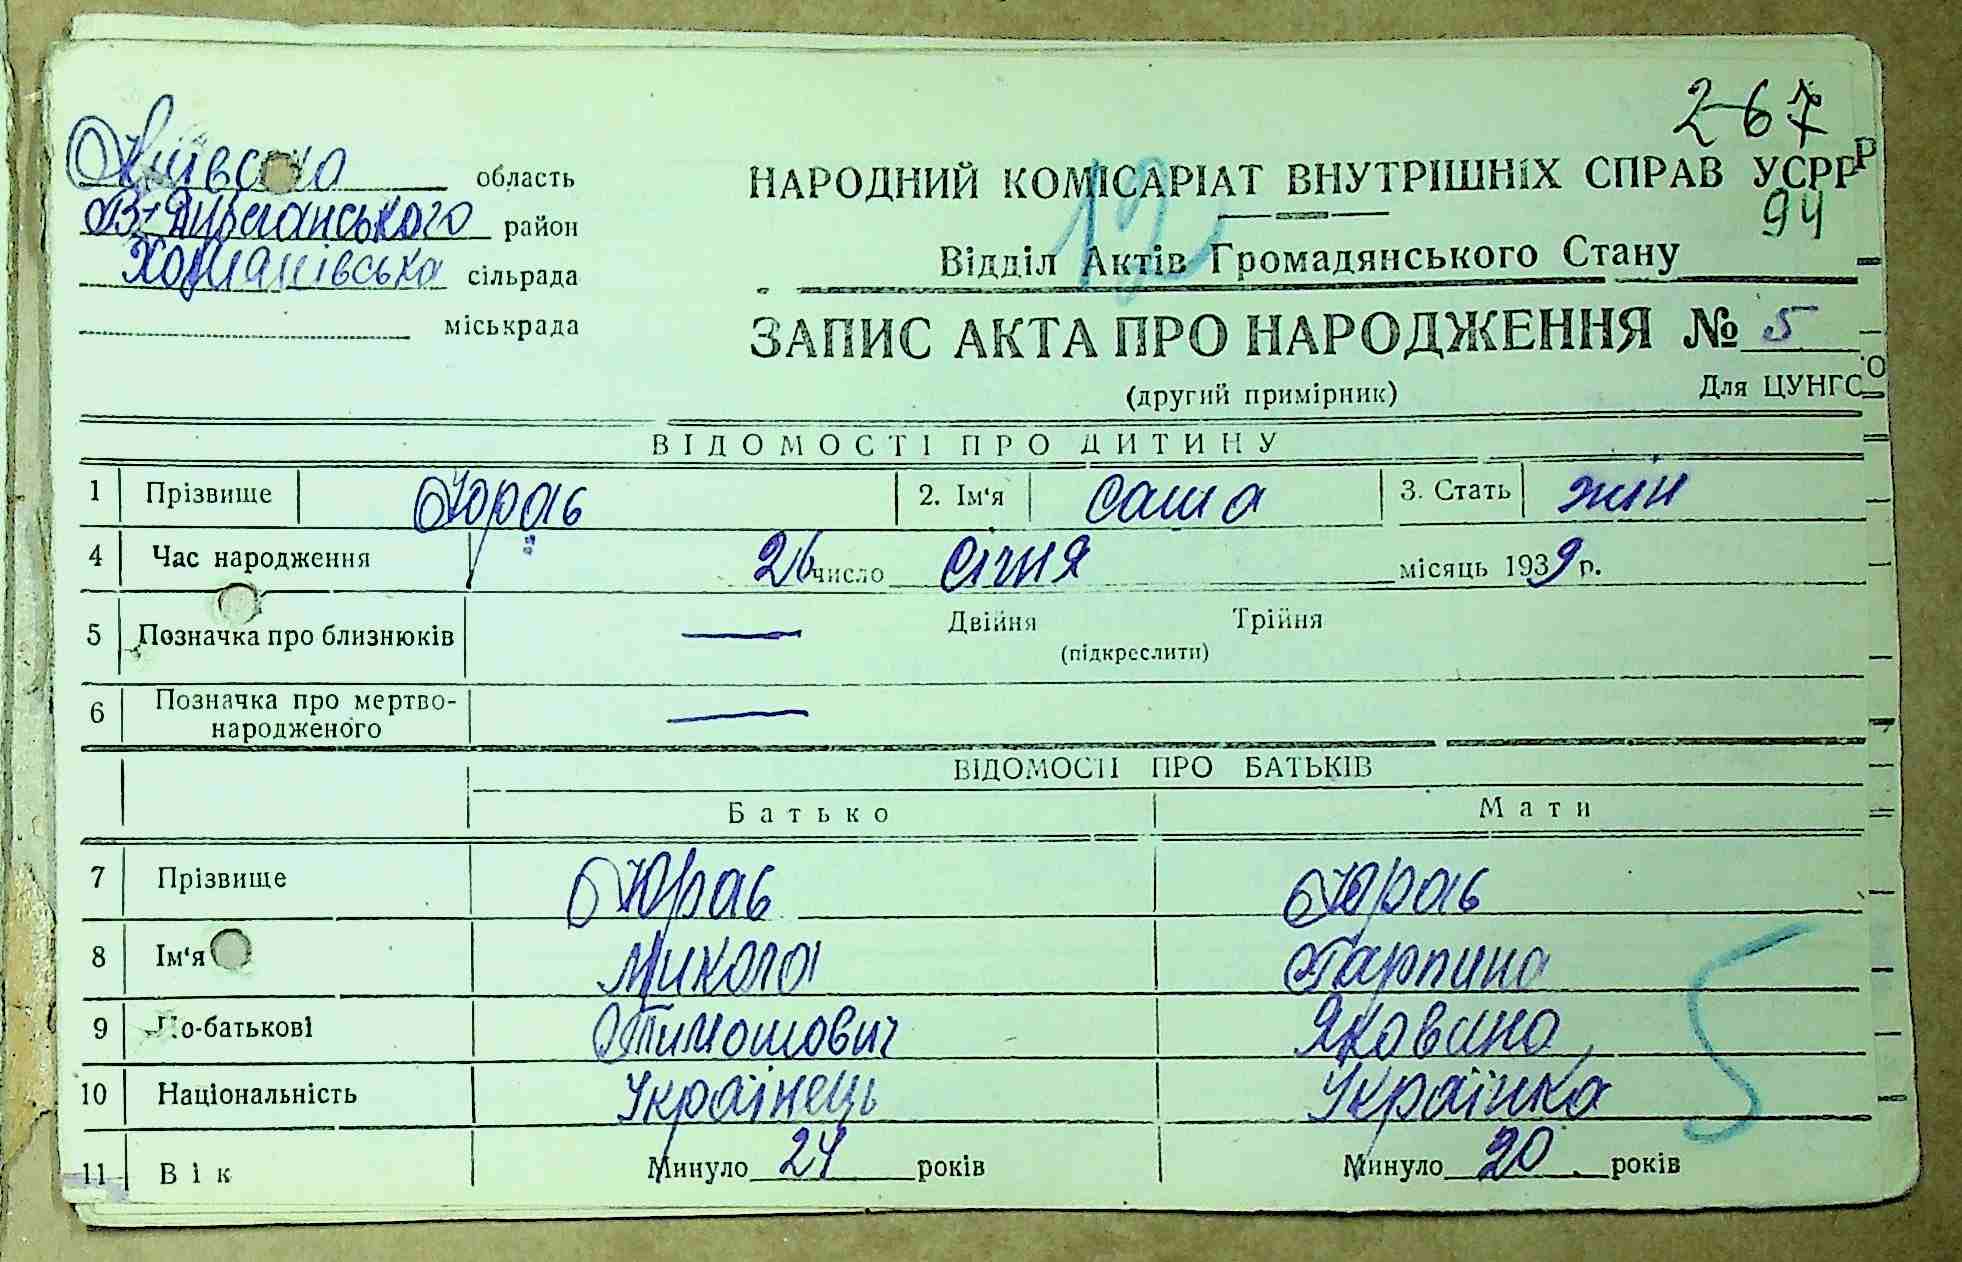 267
Київська область
НАРОДНИЙ КОМІСАРІАТ ВНУТРІШНІХ СПРАВ УСРР
94
В-Димерського район
Відділ Актів Громадянського Стану
12
сільрада
міськрада
ЗАПИС АКТА ПРО НАРОДЖЕННЯ № 5
(другий примірник)
Для ЦУНГО
ВІДОМОСТІ ПРО ДИТИНУ
1 Прізвище Юраь 2. Ім'я Саша 3. Стать жін
4 Час народження 26 число січня місяць 1939 р.
5 Позначка про близнюків — Двійня Трійня
(підкреслити)
6 Позначка про мертво-
народженого —
ВІДОМОСТІ ПРО БАТЬКІВ
Батько Мати
7 Прізвище Юраь Юраь
8 Ім'я Микола Гарпина
9 По-батькові Тимошович Яковина
10 Національність Українець Українка
5
11 Вік Минуло 24 років Минуло 20 років